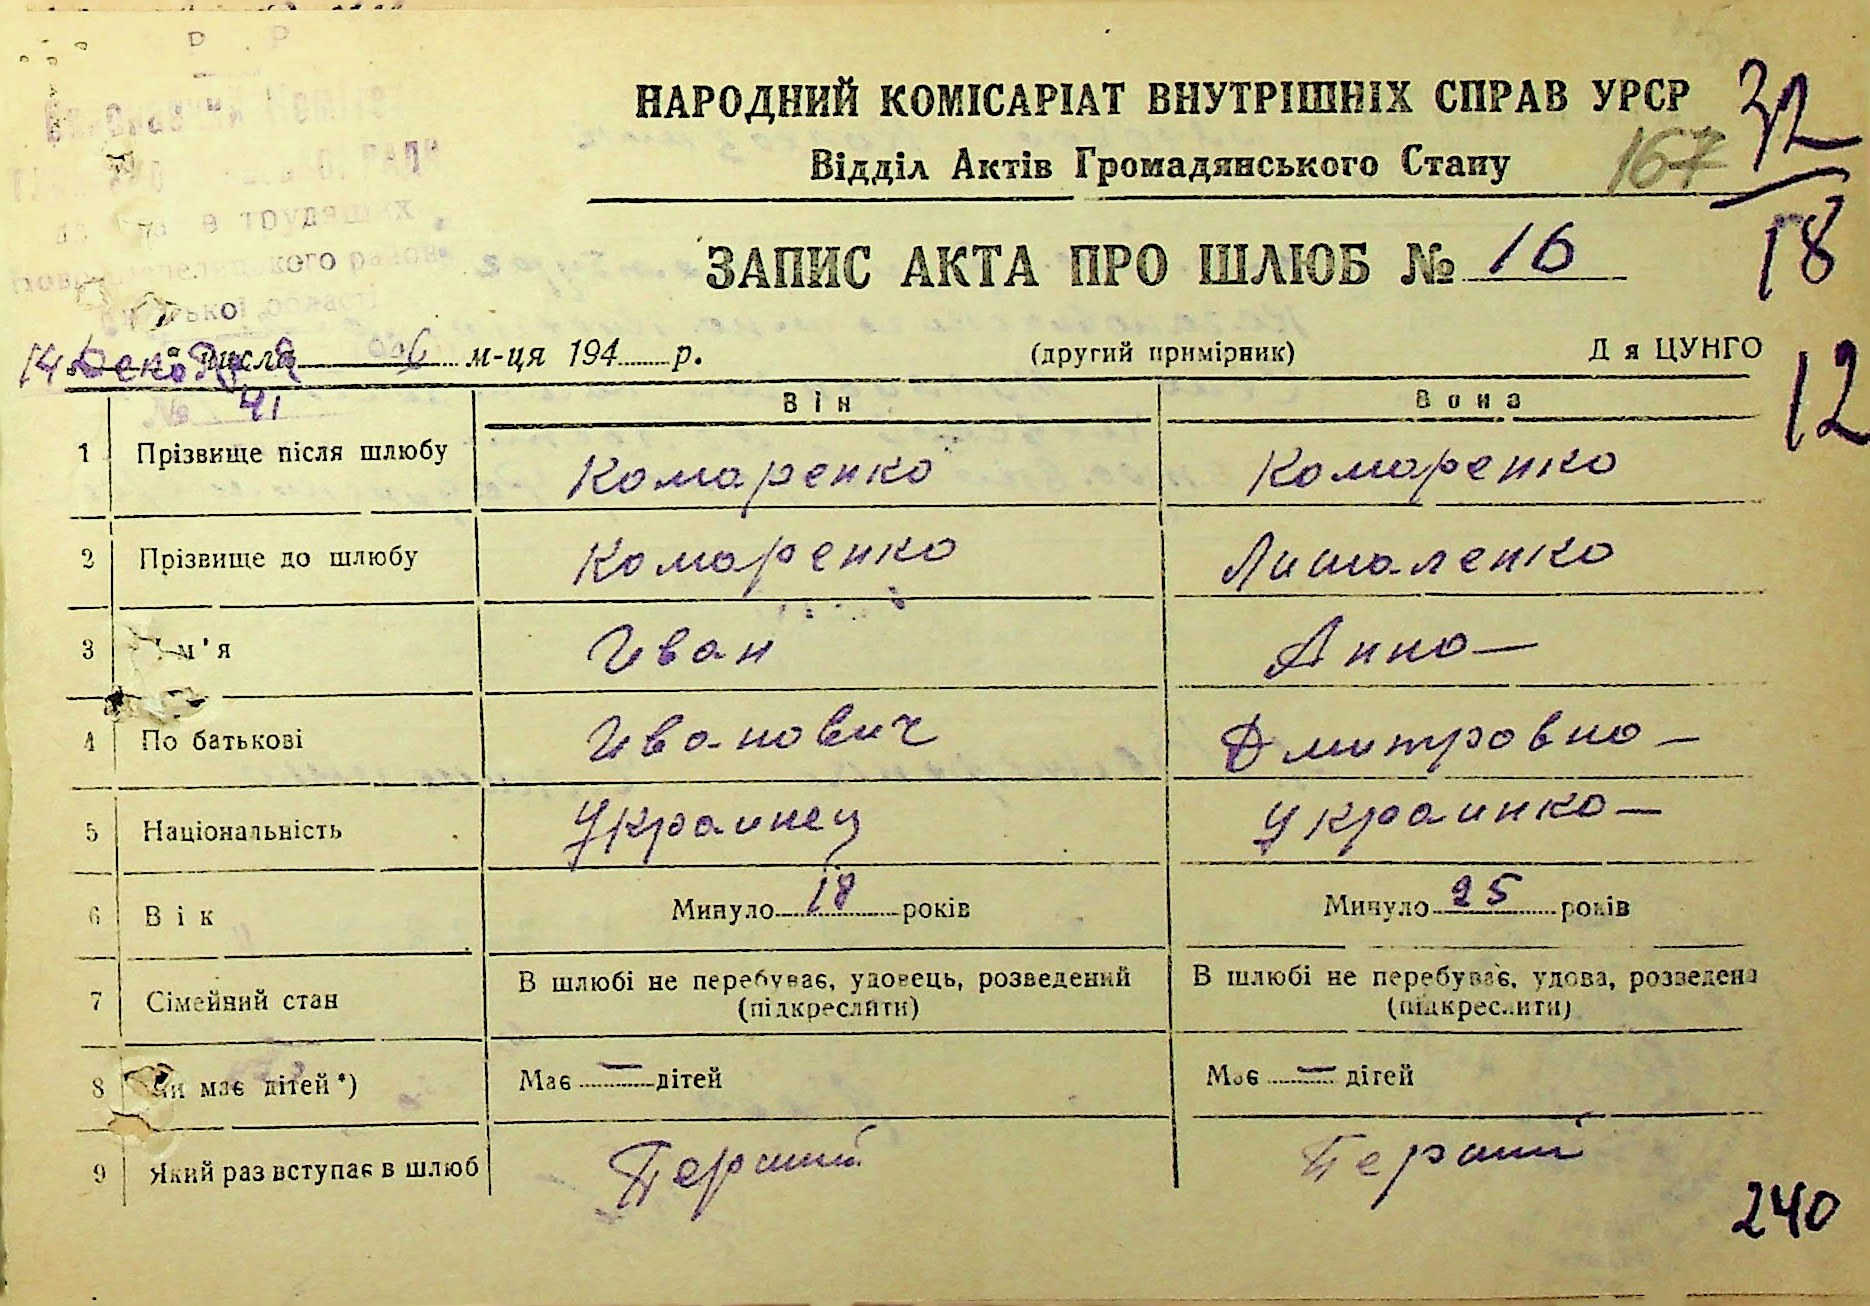 НАРОДНИЙ КОМІСАРІАТ ВНУТРІШНІХ СПРАВ УРСР
32
Відділ Актів Громадянського Стану
167
18
ЗАПИС АКТА ПРО ШЛЮБ № 16
трудящих
області
14 Декабря числа м-ця 194 р. (другий примірник) Д я ЦУНГО
41
12
Він Вона
1 Прізвище після шлюбу Комаренко Комаренко
2 Прізвище до шлюбу Комаренко
3 м'я Иван Анна
4 По батькові Иванович Дмитровна
5 Національність Украинец Украинка
6 Вік Минуло 18 років Минуло 25 років
7 Сімейний стан В шлюбі не перебуває, удовець, розведений В шлюбі не перебуває, удова, розведена
(підкреслити) (підкреслити)
8 Чи має дітей*) Має — дітей Має — дітей
9 Який раз вступає в шлюб Перший Перший
240